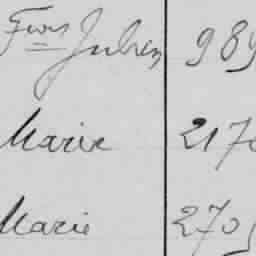 Fcois Julien 989
Marie 2170
Marie 2705